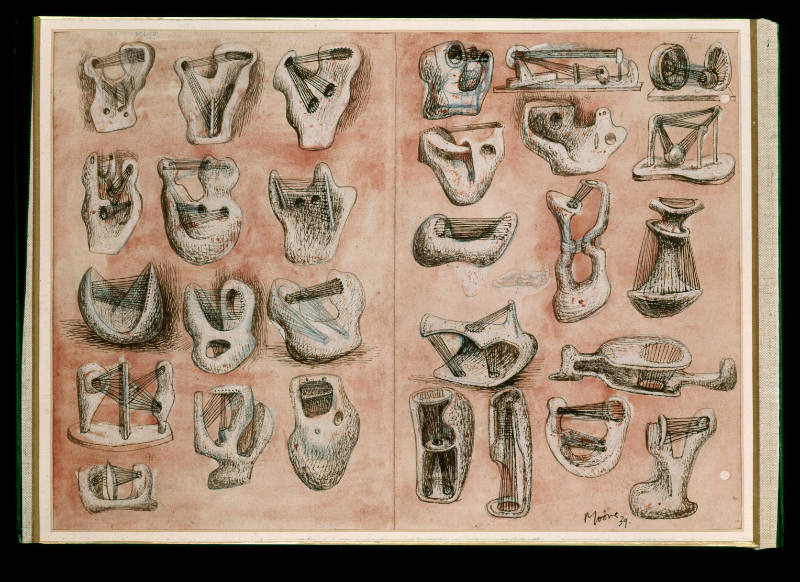 Moore
39.